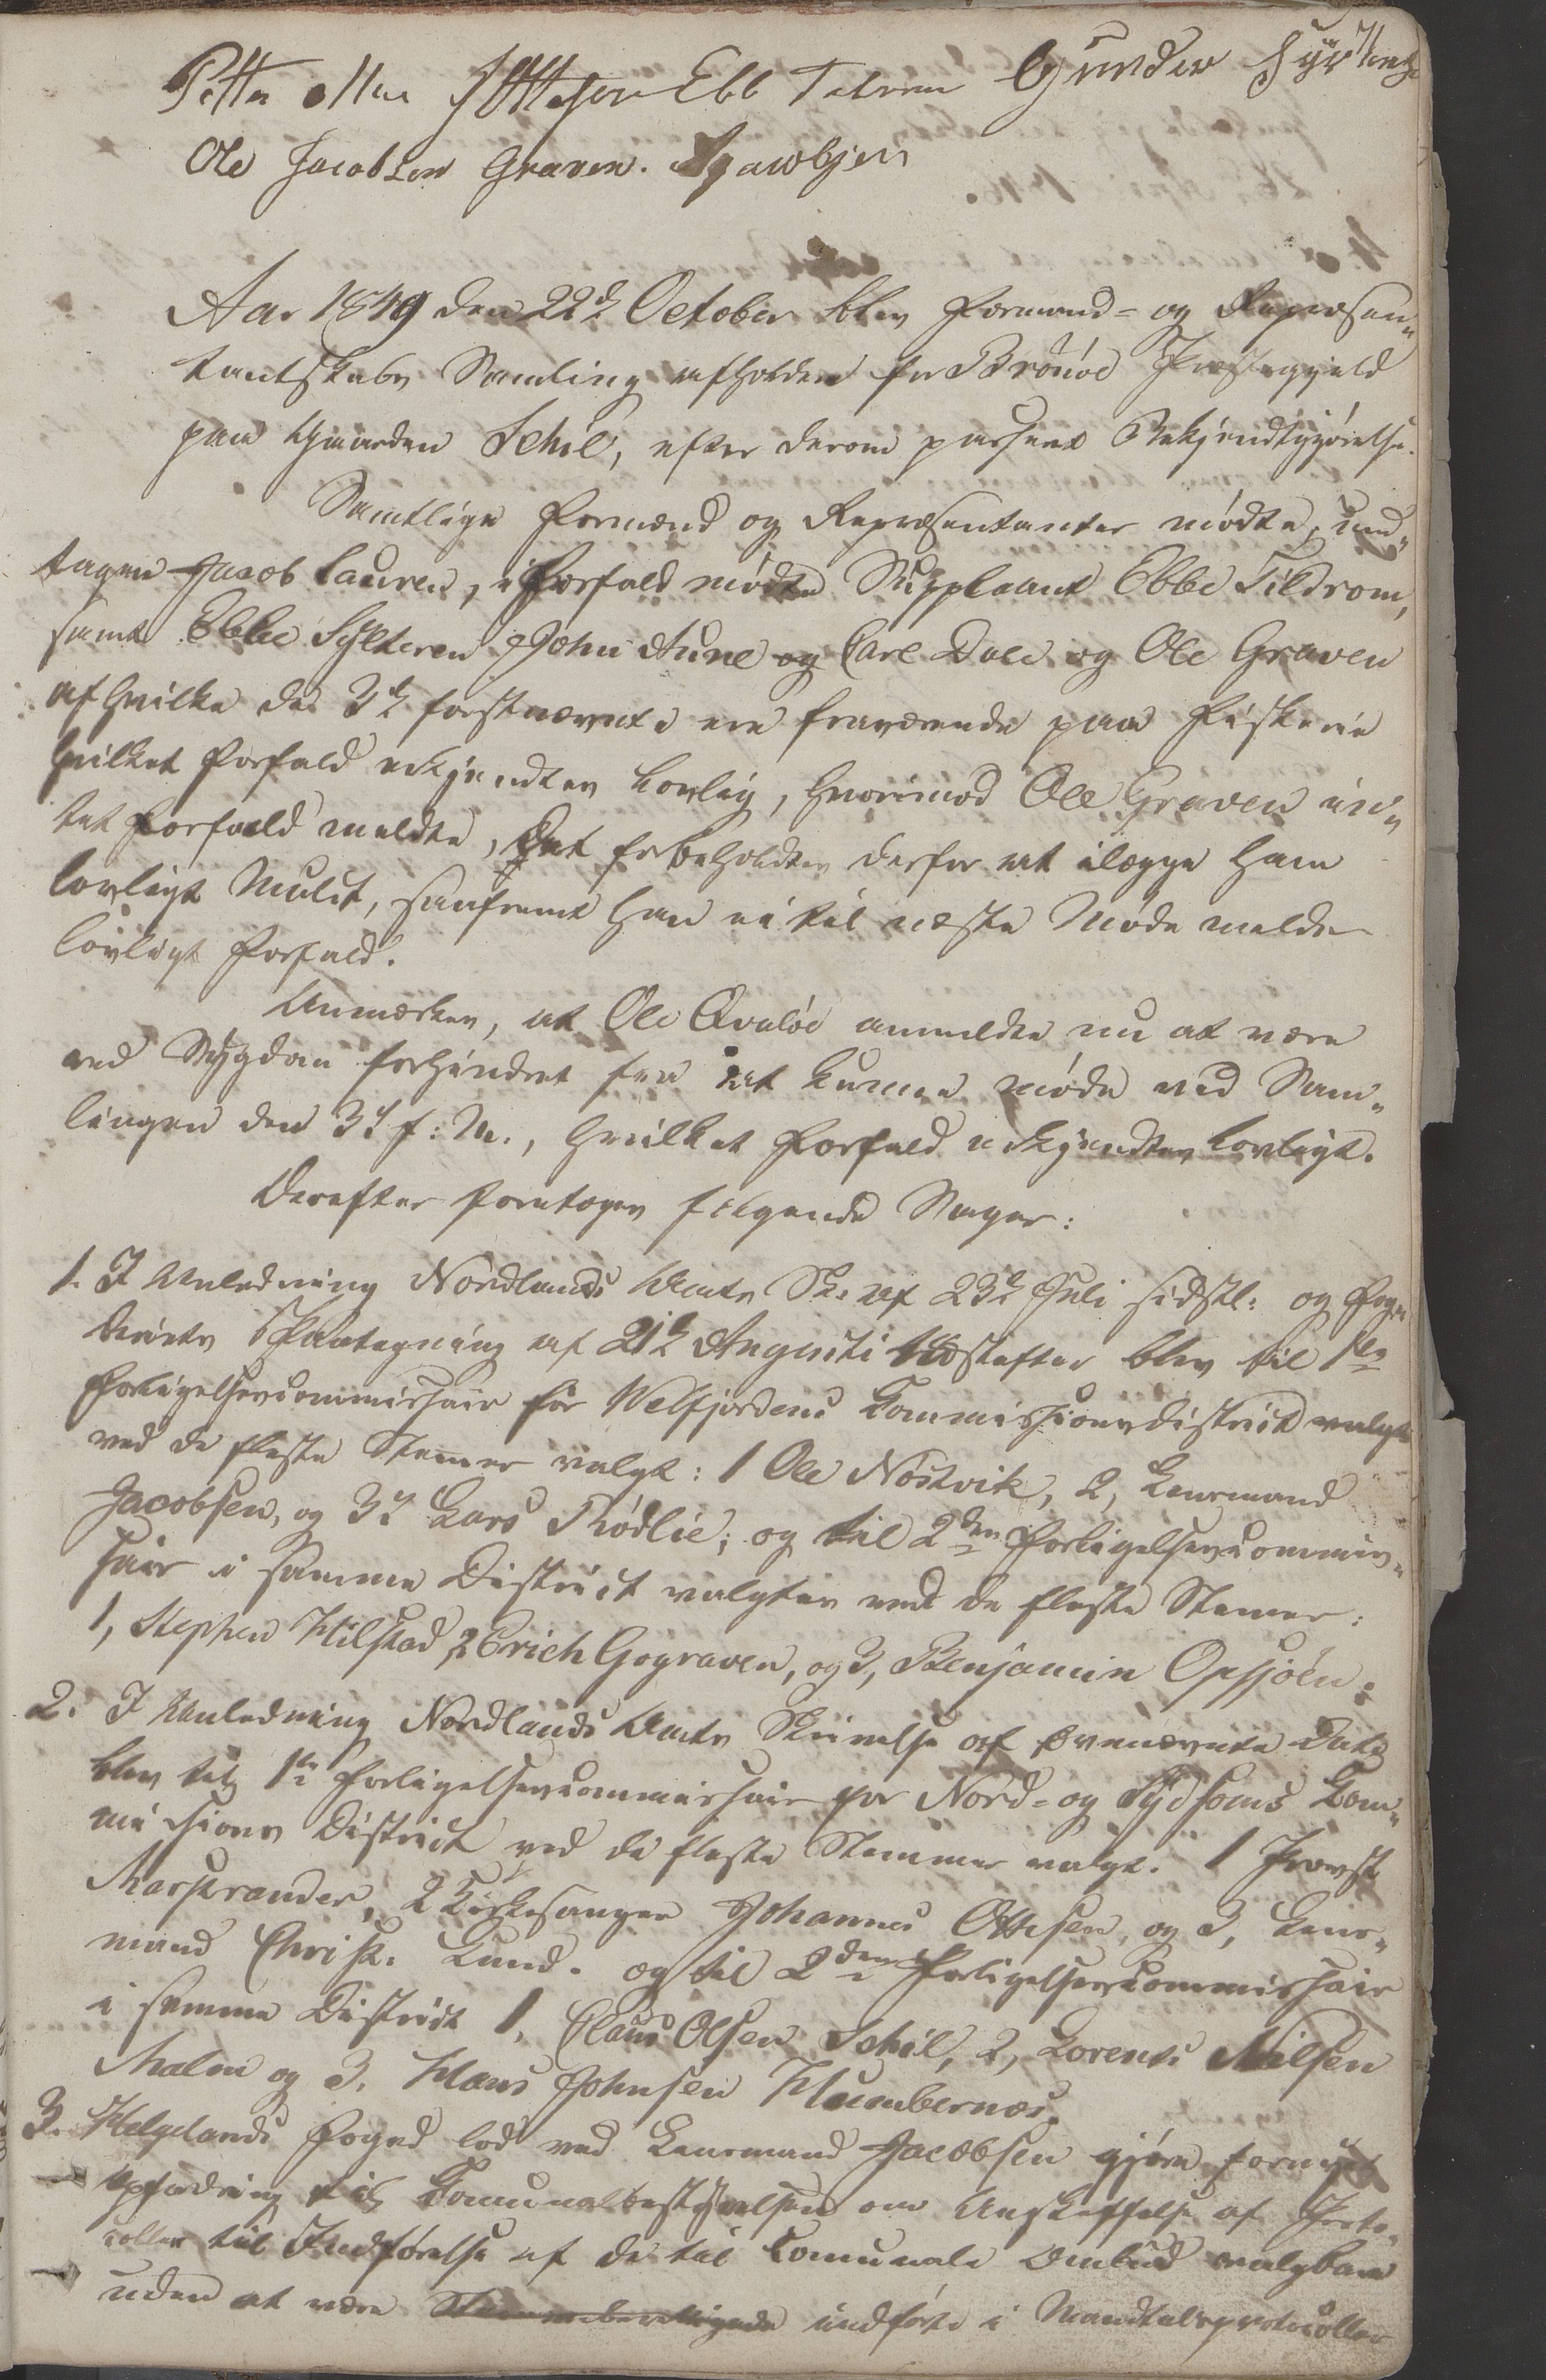 Petter Ottesen Ebb Gunder
Ole Jacobsen Graven.
Aar 1849 den 22de October blev Formand- og Repræsen„
tantskabs Samling afholden for Brönöe Præstegjeld
paa Gaarden Schil, efter derom passeret Bekjendtgjörelse.
Samtlige Formænd og Repræsentanter mödte, und„
tagen Jacob Lauren, i Forfald mödte Suppleant Ebbe Tilrom,
samt Ebbe Sylteren John Aune og Carl Dale og Ole Graven
af hvilke de 3de förstnævnte ere fraværende paa Fiskerie
hvilket Forfald erkjendtes lovlig, hvorimod Ole Graven in„
tet Forfald meldte, Det forbeholdtes derfor at ilægge ham
lovligt Mulct, saafremt han ei til næste Möde melder
lovligt Forfald.
Anmærkes, at Ole Qvalöe anmeldte nu at være
ved Sygdom forhindret fra at kunne möde ved Sam„
lingen den 3die f: M., hvilket Forfald erkjendtes lovligt.
Derefter foretoges fölgende Sager:
1. I Anledning Nordlands Amts Sk. af 23de Juli sidstl: og Foge„
deriets Paategning af 21de Augusti næstefter blev til 1ste
Forligelsescommissair for Velfjordens Commissionsdistrict valgt
ved de fleste Stemer valgt: 1 Ole Nöstvik, 2, Lensmand
Jacobsen, og 3die Lars Rödlie; og til 2den Forligelsescommis„
sair i samme District valgtes med de fleste Stemer:
1, Stephen Hilstad, 2 Erich Gograven, og 3, Benjamin Opsjöen.
2. I Anledning Nordlands Amts Skrivelse af ovennævnte Dato
blev til 1ste Forligelsescommissair for Nord- og Sydsoms Com„
missions District ved de fleste Stemmer valgt. 1 Provst
Marstrander, 2 Kirkesanger Johannes Ottesen, og 3, Lens„
mand Christ. Lund. og til 2den Forligelsescommissair
i samme District 1, Claus Olsen Schil, 2, Lorents Nilsen
Malm og 3. Hans Johnsen Humbernæs.
3. Helgelands Foged lod ved Lensmand Jacobsen gjöre fornyet
Opfordring til Comunalbestyrelsen om Anskaffelse af Proto„
coller til Indförelse af de til Comunale Ombud valgbare
uden at være Stemmeberettigede indförte i Mandtalsprotocollen